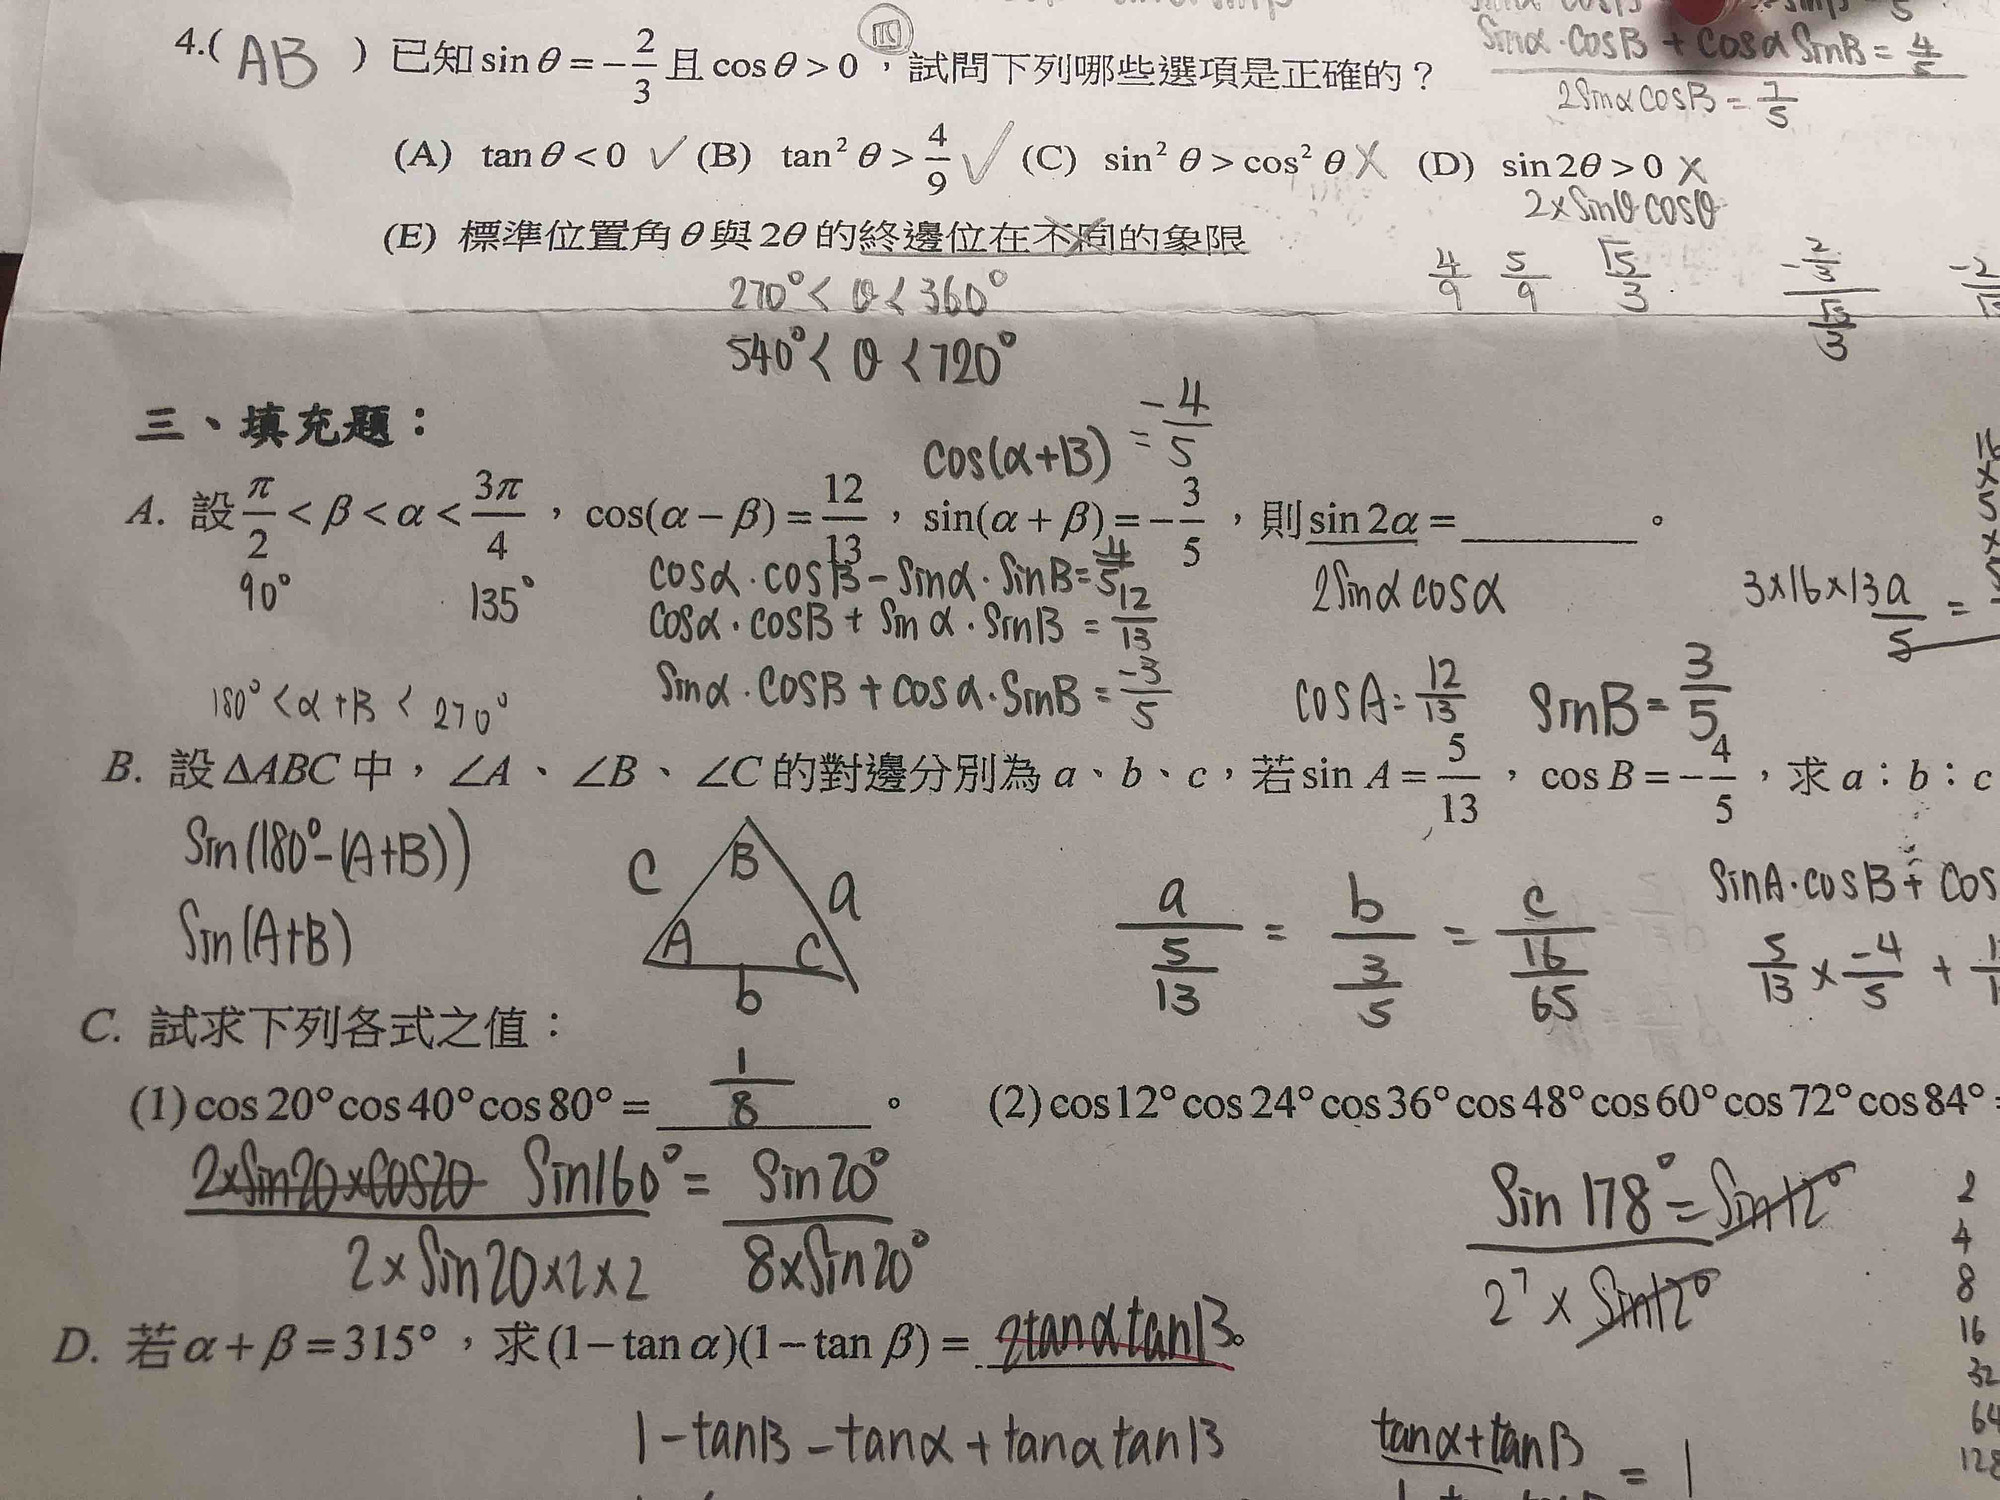 sinα·cosB + cosα sinB = 4/5
2sinαcosB = 7/5
4.( AB ) 已知 sin θ = -2/3 且 cos θ > 0 ，試問下列哪些選項是正確的？
四
(A) tan θ < 0 ✓ (B) tan² θ > 4/9 ✓ (C) sin² θ > cos² θ X (D) sin 2θ > 0 X
2×sinθ cosθ
(E) 標準位置角 θ 與 2θ 的終邊位在不同的象限
4/9 5/9 √5/3
270° < θ < 360°
540° < θ < 720°
三、填充題：
cos(α+B) = -4/5
A. 設 π/2 < β < α < 3π/4 ， cos(α − β) = 12/13 ， sin(α + β) = −3/5 ，則 sin 2α = ________ 。
90° 135°
cosα·cosB − sinα·sinB = -4/5
cosα·cosB + sinα·sinB = 12/13
sinα·cosB + cosα·sinB = -3/5
2sinα cosα
180° < α+B < 270°
cosA = 12/13 sinB = 3/5
B. 設 ΔABC 中，∠A、∠B、∠C 的對邊分別為 a、b、c，若 sin A = 5/13 ， cos B = −4/5 ，求 a：b：c
sin(180°−(A+B))
sin(A+B)
c B a
A C
b
a/(5/13) = b/(3/5) = c/(16/65)
sinA·cosB + cos
5/13 × -4/5 +
C. 試求下列各式之值：
(1) cos 20° cos 40° cos 80° = 1/8 。 (2) cos 12° cos 24° cos 36° cos 48° cos 60° cos 72° cos 84° =
2×sin20×cos20 sin160° = sin20°
2×sin20×2×2 8×sin20°
sin178° = sin12°
2⁷ × sin12°
2
4
8
16
32
64
128
D. 若 α + β = 315° ，求 (1 − tan α)(1 − tan β) = 2tanαtanB 。
1 − tanB − tanα + tanαtanB
tanα + tanB
= 1